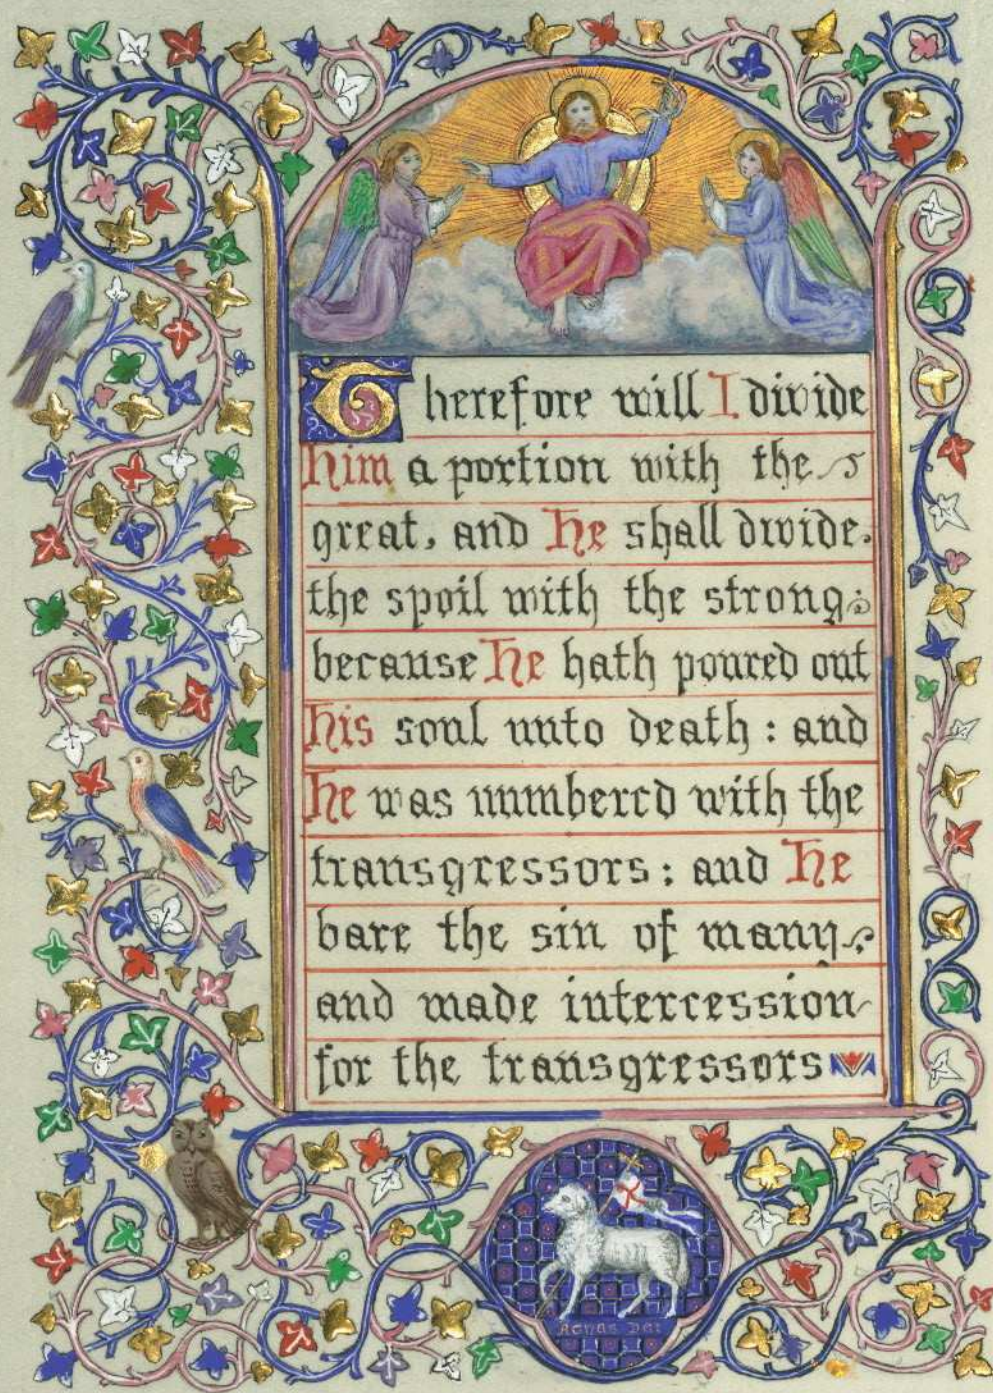 Therefore will I divide
him a portion with the
great, and he shall divide
the spoil with the strong;
because he hath poured out
his soul unto death: and
he was numbered with the
transgressors: and he
bare the sin of many;
and made intercession
for the transgressors
AGNUS DEI